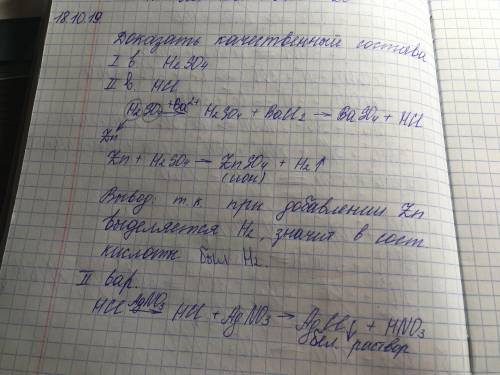 18.10.19
Доказать качественный состава
I в H₂SO₄
II в HCl
H₂SO₄ +Ba²⁺ H₂SO₄ + BaCl₂ → BaSO₄ + HCl
Zn
Zn + H₂SO₄ → ZnSO₄ + H₂↑
Вывод: т.к при добавлении Zn
выделяется H₂, значит в сост
кислоты был H₂.
II вар.
HCl AgNO₃ → HCl + AgNO₃ → AgCl↓ + HNO₃
бел. раствор